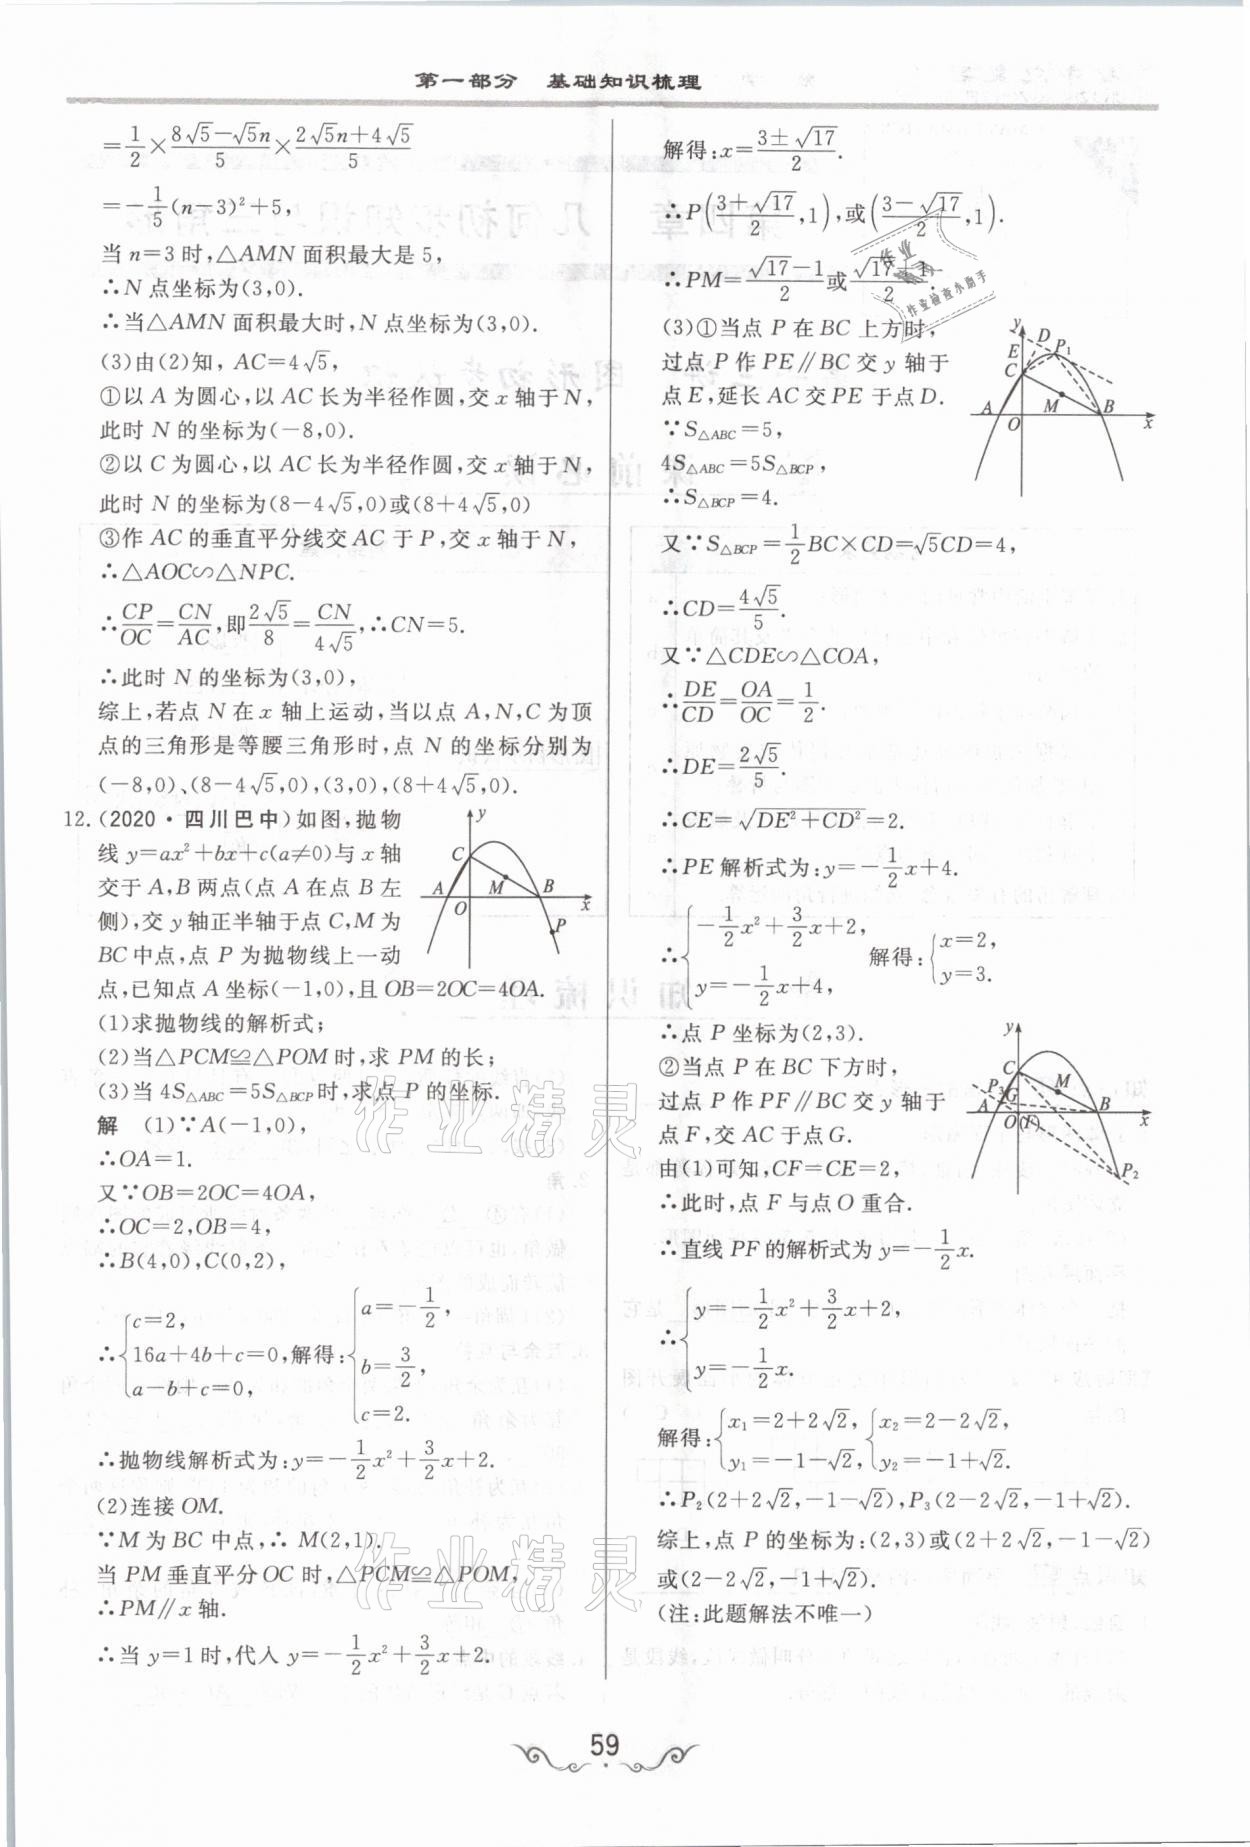 第一部分　基础知识梳理
=\frac{1}{2}×\frac{8√5-√5n}{5}×\frac{2√5n+4√5}{5}
=-\frac{1}{5}(n-3)²+5,
当n=3时,△AMN面积最大是5,
∴N点坐标为(3,0).
∴当△AMN面积最大时,N点坐标为(3,0).
(3)由(2)知,AC=4√5,
①以A为圆心,以AC长为半径作圆,交x轴于N,
此时N的坐标为(-8,0).
②以C为圆心,以AC长为半径作圆,交x轴于N,
此时N的坐标为(8-4√5,0)或(8+4√5,0)
③作AC的垂直平分线交AC于P,交x轴于N,
∴△AOC∽△NPC.
∴\frac{CP}{OC}=\frac{CN}{AC},即\frac{2√5}{8}=\frac{CN}{4√5},∴CN=5.
∴此时N的坐标为(3,0),
综上,若点N在x轴上运动,当以点A,N,C为顶
点的三角形是等腰三角形时,点N的坐标分别为
(-8,0)、(8-4√5,0),(3,0),(8+4√5,0).
12.(2020·四川巴中)如图,抛物
线y=ax²+bx+c(a≠0)与x轴
交于A,B两点(点A在点B左
侧),交y轴正半轴于点C,M为
BC中点,点P为抛物线上一动
点,已知点A坐标(-1,0),且OB=2OC=4OA.
y
C
M
A
O
B
x
P
(1)求抛物线的解析式;
(2)当△PCM≌△POM时,求PM的长;
(3)当4S△ABC=5S△BCP时,求点P的坐标.
解　(1)∵A(-1,0),
∴OA=1.
又∵OB=2OC=4OA,
∴OC=2,OB=4,
∴B(4,0),C(0,2),
∴{c=2, 16a+4b+c=0, a-b+c=0, 解得:{a=-\frac{1}{2}, b=\frac{3}{2}, c=2.
∴抛物线解析式为:y=-\frac{1}{2}x²+\frac{3}{2}x+2.
(2)连接OM.
∵M为BC中点,∴M(2,1).
当PM垂直平分OC时,△PCM≌△POM,
∴PM∥x轴.
∴当y=1时,代入y=-\frac{1}{2}x²+\frac{3}{2}x+2.
解得:x=\frac{3±√17}{2}.
∴P(\frac{3+√17}{2},1),或(\frac{3-√17}{2},1).
∴PM=\frac{√17-1}{2}或\frac{√17+1}{2}.
(3)①当点P在BC上方时,
过点P作PE∥BC交y轴于
点E,延长AC交PE于点D.
y
D
E
P₁
C
M
A
O
B
x
∵S△ABC=5,
4S△ABC=5S△BCP,
∴S△BCP=4.
又∵S△BCP=\frac{1}{2}BC×CD=√5CD=4,
∴CD=\frac{4√5}{5}.
又∵△CDE∽△COA,
∴\frac{DE}{CD}=\frac{OA}{OC}=\frac{1}{2}.
∴DE=\frac{2√5}{5}.
∴CE=√(DE²+CD²)=2.
∴PE解析式为:y=-\frac{1}{2}x+4.
∴{-\frac{1}{2}x²+\frac{3}{2}x+2, y=-\frac{1}{2}x+4, 解得:{x=2, y=3.
∴点P坐标为(2,3).
②当点P在BC下方时,
过点P作PF∥BC交y轴于
点F,交AC于点G.
y
C
M
P₃
G
A
O
(F)
B
x
P₂
由(1)可知,CF=CE=2,
∴此时,点F与点O重合.
∴直线PF的解析式为y=-\frac{1}{2}x.
∴{y=-\frac{1}{2}x²+\frac{3}{2}x+2, y=-\frac{1}{2}x.
解得:{x₁=2+2√2, y₁=-1-√2, {x₂=2-2√2, y₂=-1+√2.
∴P₂(2+2√2,-1-√2),P₃(2-2√2,-1+√2).
综上,点P的坐标为:(2,3)或(2+2√2,-1-√2)
或(2-2√2,-1+√2).
(注:此题解法不唯一)
59
作业精灵
作业精灵
作业
作业检查小助手